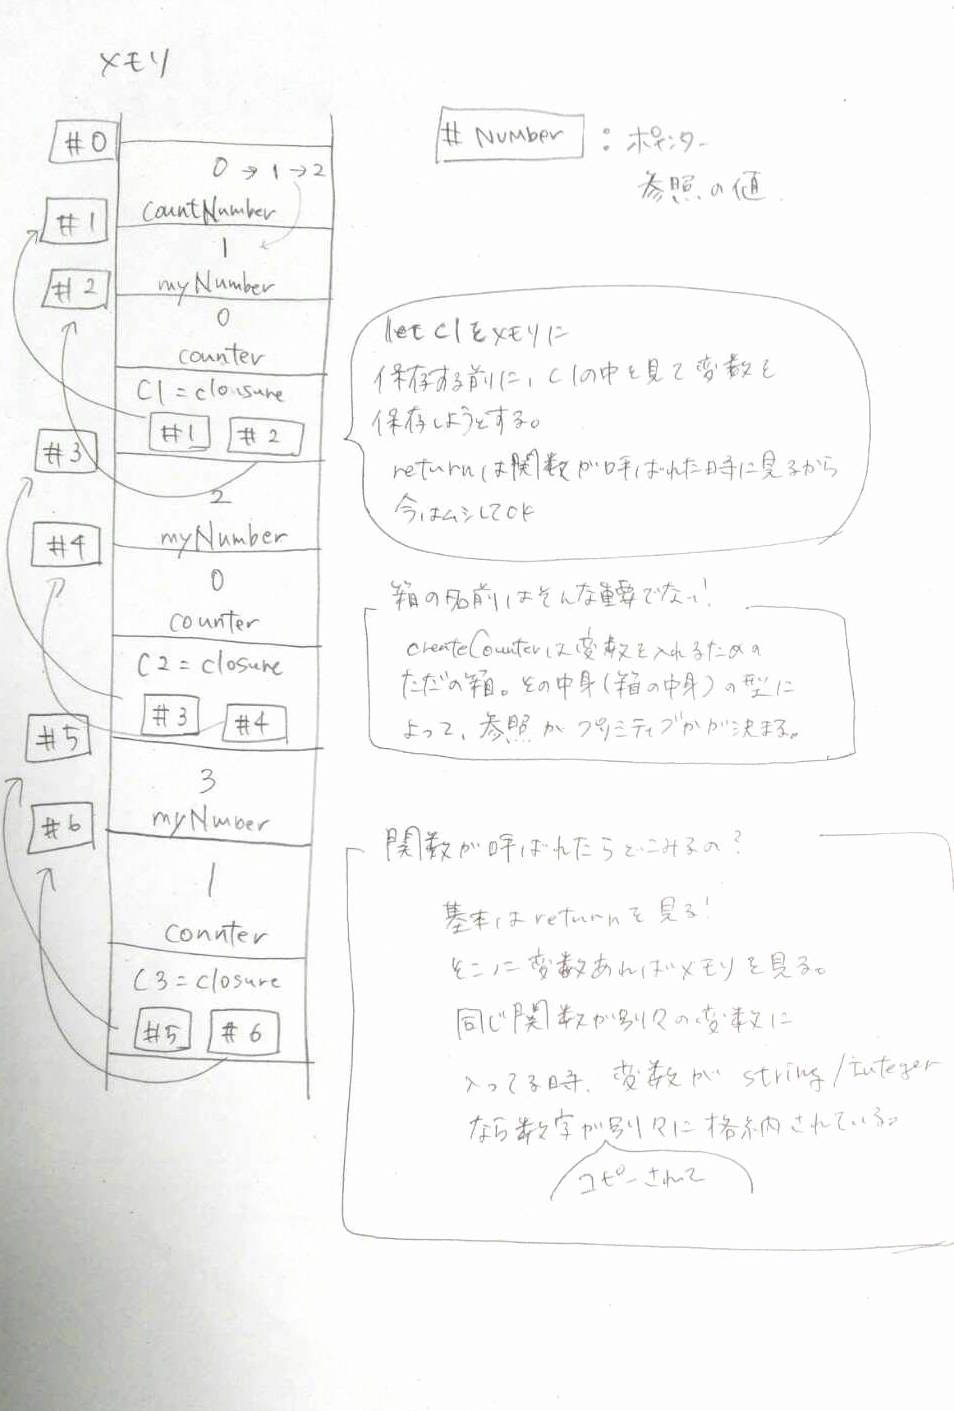 メモリ
#0
0 → 1 → 2
countNumber
#1
1
myNumber
#2
0
counter
C1 = clousure
#1 #2
#3
2
myNumber
#4
0
counter
C2 = closure
#3 #4
#5
3
myNumber
#6
1
connter
C3 = closure
#5 #6
# Number : ポインター
参照の値
let C1をメモリに
保存する前に、C1の中を見て変数を
保存しようとする。
returnは関数が呼ばれた時に見るから
今はムシしてOK
箱の名前はそんな重要でない!
createCounterは変数を入れるための
ただの箱。その中身(箱の中身)の型に
よって、参照かプリミティブかが決まる。
関数が呼ばれたらどこみるの?
基本はreturnを見る!
そこに変数あればメモリを見る。
同じ関数が別々の変数に
入ってる時、変数が string/integer
なら数字が別々に格納されている。
コピーされて